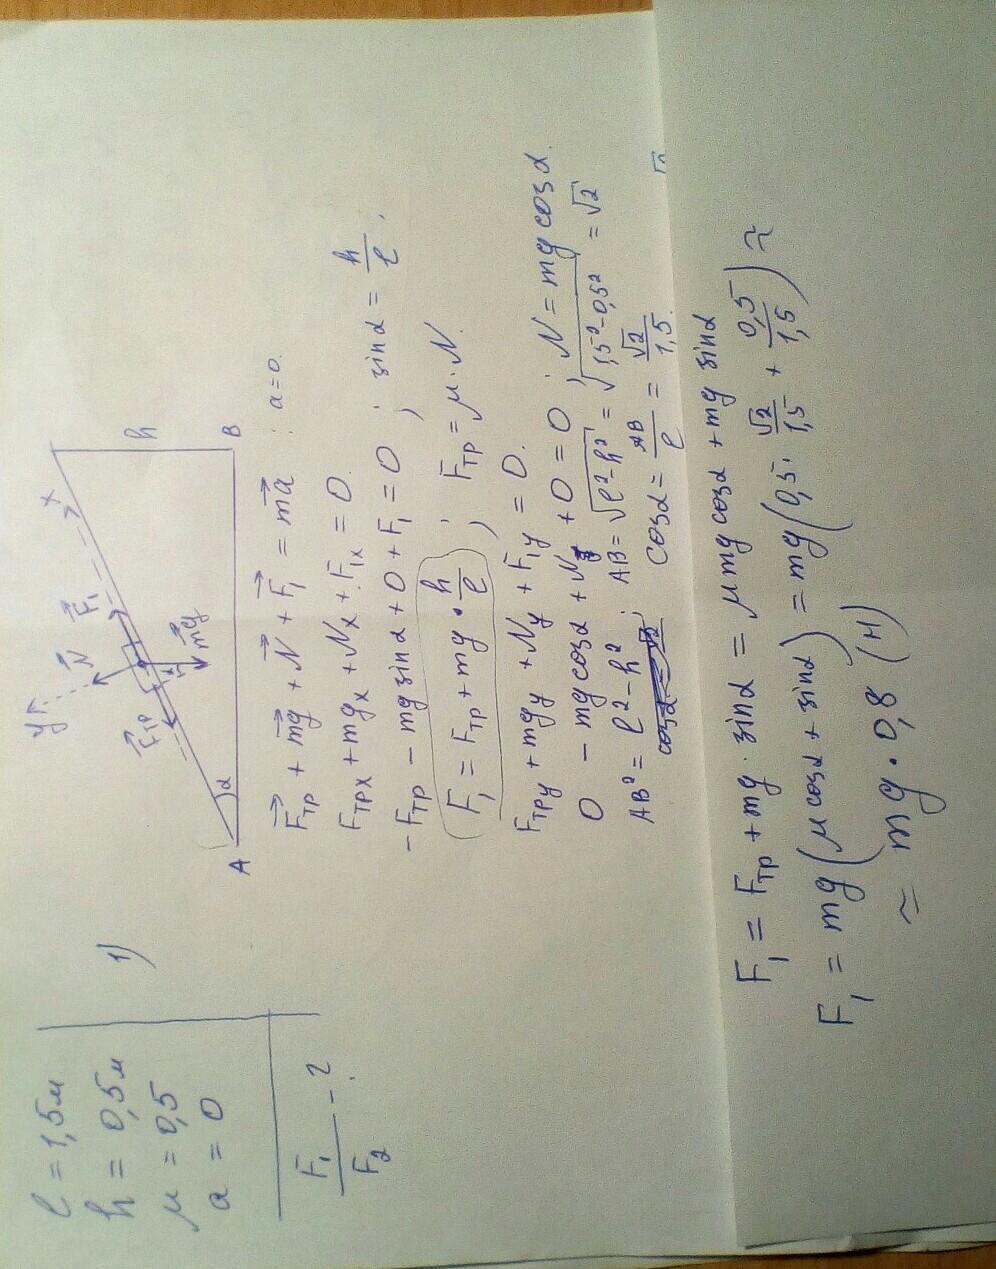 l = 1,5м
h = 0,5м
μ = 0,5
a = 0
F₁/F₂ - ?
1)
y
N⃗
F⃗₁
x
F⃗тр
mg⃗
h
α
A
B
F⃗тр + mg⃗ + N⃗ + F⃗₁ = ma⃗ : a=0.
Fтрx + mgx + Nx + F₁x = 0
-Fтр - mg sinα + 0 + F₁ = 0 ; sinα = h/l ;
F₁ = Fтр + mg · h/l ; Fтр = μ·N.
Fтрy + mgy + Ny + F₁y = 0.
0 - mg cosα + N + 0 = 0 ; N = mg cosα.
AB² = l² - h² ; AB = √(l²-h²) = √(1,5²-0,5²) = √2
cosα = AB/l = √2/1,5.
F₁ = Fтр + mg · sinα = μ mg cosα + mg sinα
F₁ = mg (μ cosα + sinα) = mg (0,5 · √2/1,5 + 0,5/1,5) ≈
≈ mg · 0,8 (Н)